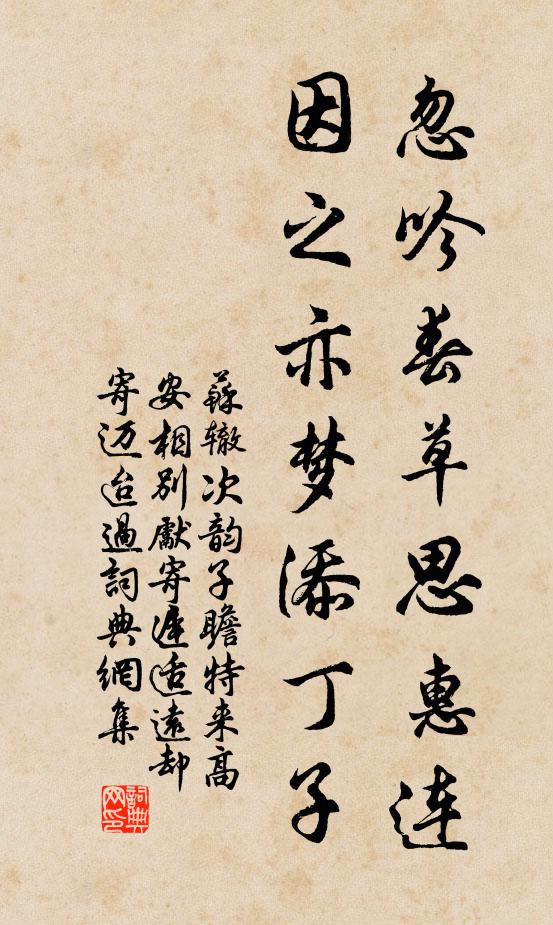 忽吟春草思惠连
因之亦梦添丁子
蘇辙次韵子瞻特来高
安相別獻寄遲适遠却
寄迈迨過詞典網集
詞典網印